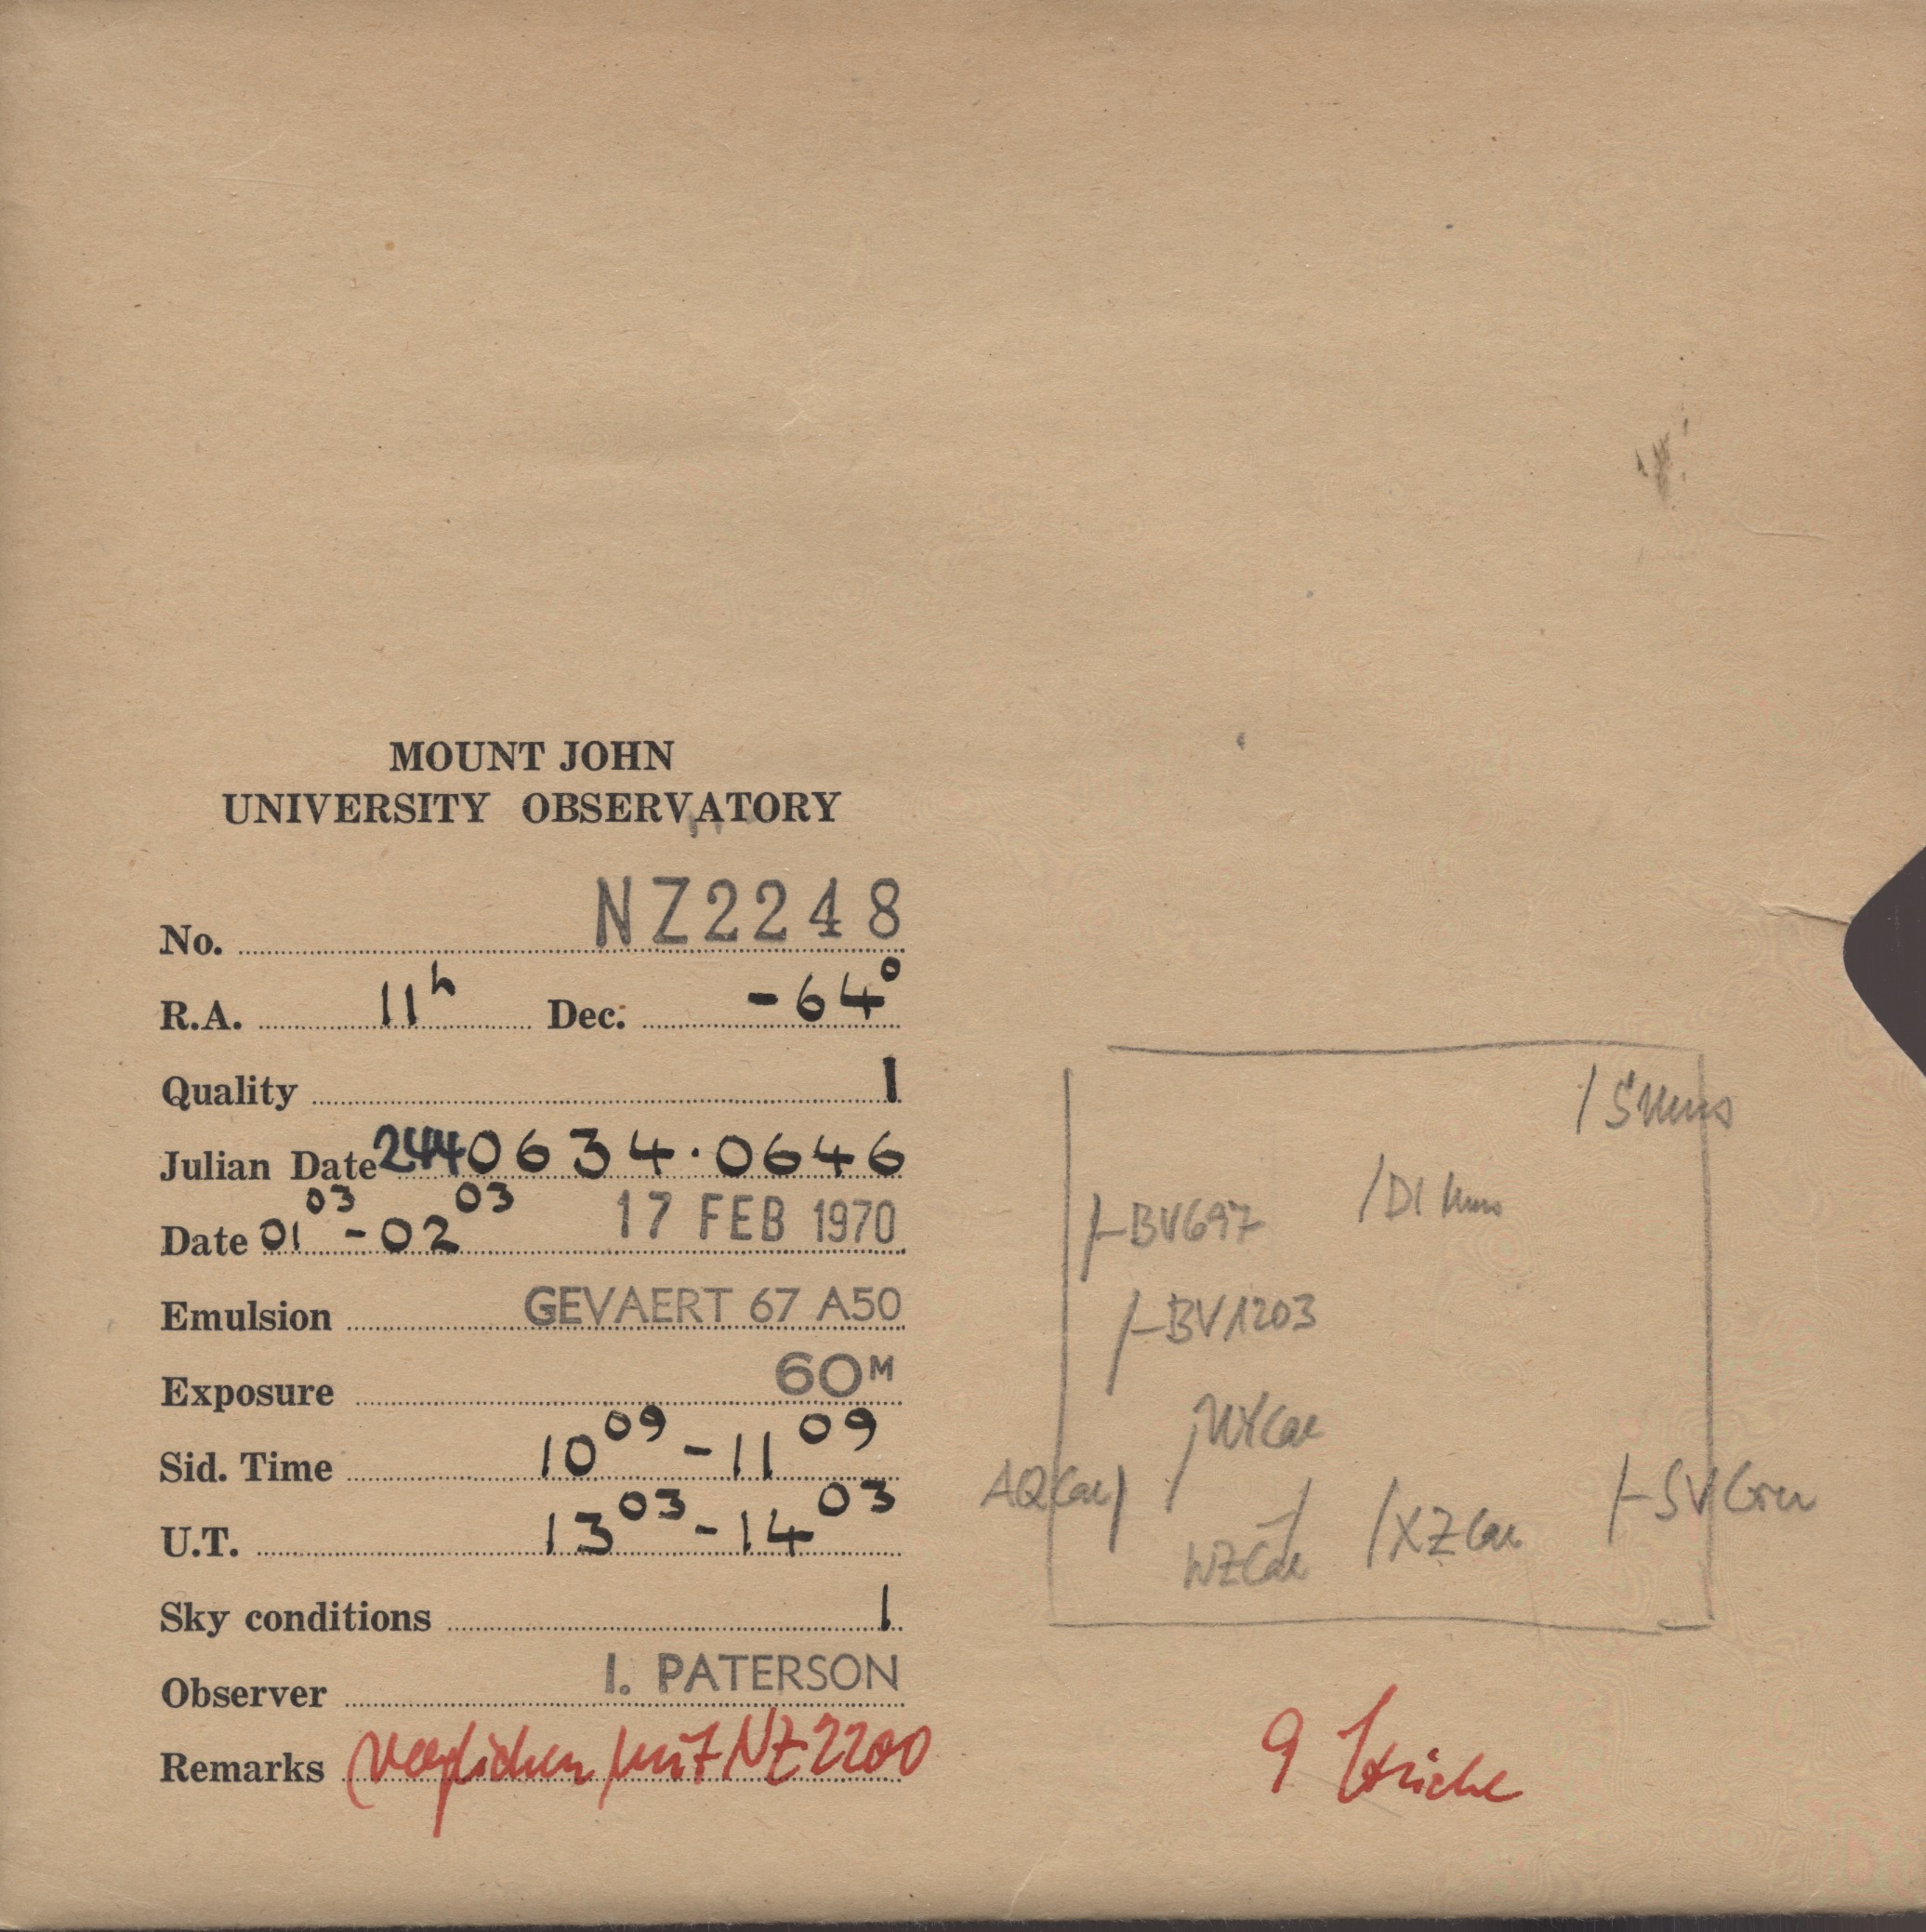 MOUNT JOHN
UNIVERSITY OBSERVATORY
No. NZ2248
R.A. 11h Dec. -64°
Quality 1
Julian Date 2440634.0646
Date 01 03 - 02 03 17 FEB 1970
Emulsion GEVAERT 67 A50
Exposure 60M
Sid. Time 10 09 - 11 09
U.T. 13 03 - 14 03
Sky conditions 1
Observer I. PATERSON
Remarks verglichen mit NZ2200
S Mus
DI Mus
BV697
BV1203
WX Car
AQ Car
WZ Car
XZ Car
SV Cru
9 Striche